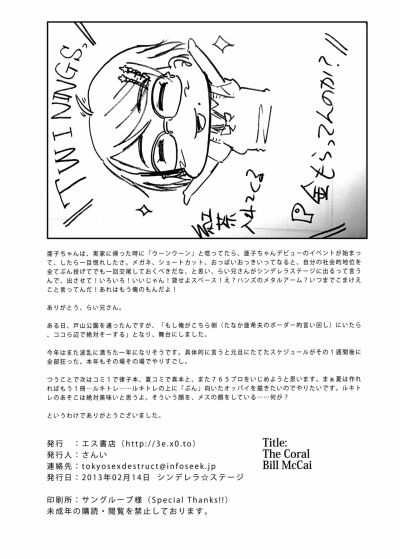 TWININGS,
紅茶
入れてくる
P金もらってんのか?!!
亜子ちゃんは、実家に帰った時に「ウーンウーン」と唸ってたら、亜子ちゃんデビューのイベントが始まって、したら一目惚れしたさ。メガネ、ショートカット、おっぱいおっきいってなると、自分の社会的地位を全てぶん投げてでも一回交尾しておくべきだな、と思い、らい兄さんがシンデレラステージに出るって言うんで、出させて!いろいろ!いいじゃん!貸せよスペース!え?ハンズのメタルアーム?いつまでこまけえこと言ってんだ!あれはもう俺のもんだよ!
ありがとう、らい兄さん。
ある日、戸山公園を通ったんですが、「もし俺がこちら側(たなか亜希夫のボーダー的言い回し)にいたら、ココら辺で絶対そーする」となり、舞台にしました。
今年はまた波乱に満ちた一年になりそうです。具体的に言うと元旦にたてたスケジュールがその1週間後に全部狂った。本年もその場その場でやりすごし。
つうことで次はコミ1で律子本、夏コミで真本と、また765プロをいじめようと思います。まぁ夏は作れればもう1冊…ルキトレ…ルキトレの上に「ぶん」向いたオッパイを描きたいのでやりたいです。ルキトレのあそこは絶対美味いと思うよ。そういう顔を、メスの顔をしている……何が?
というわけでありがとうございました。
発行 :エス書店(http://3e.x0.to)
発行人:さんい
連絡先:tokyosexdestruct@infoseek.jp
発行日:2013年02月14日 シンデレラ☆ステージ
印刷所:サングループ様(Special Thanks!!)
未成年の購読・閲覧を禁止しております。
Title:
The Coral
Bill McCai